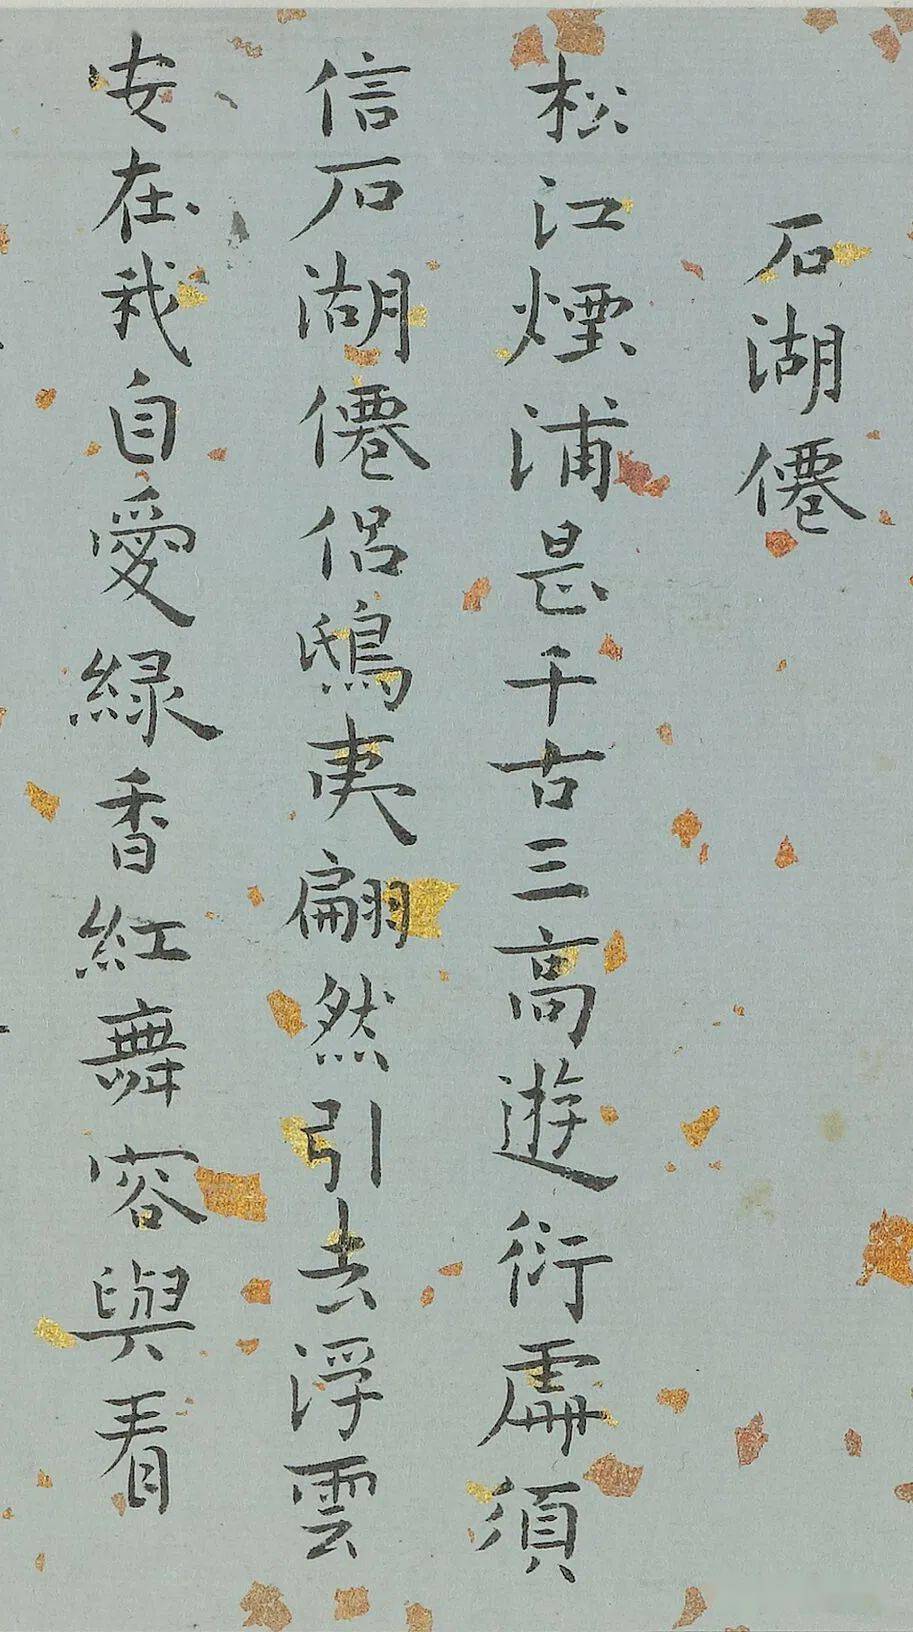 石湖僊
松江煙浦是千古三高遊衍處須
信石湖僊侶鴟夷翩然引去浮雲
安在我自愛緑香紅舞容與看